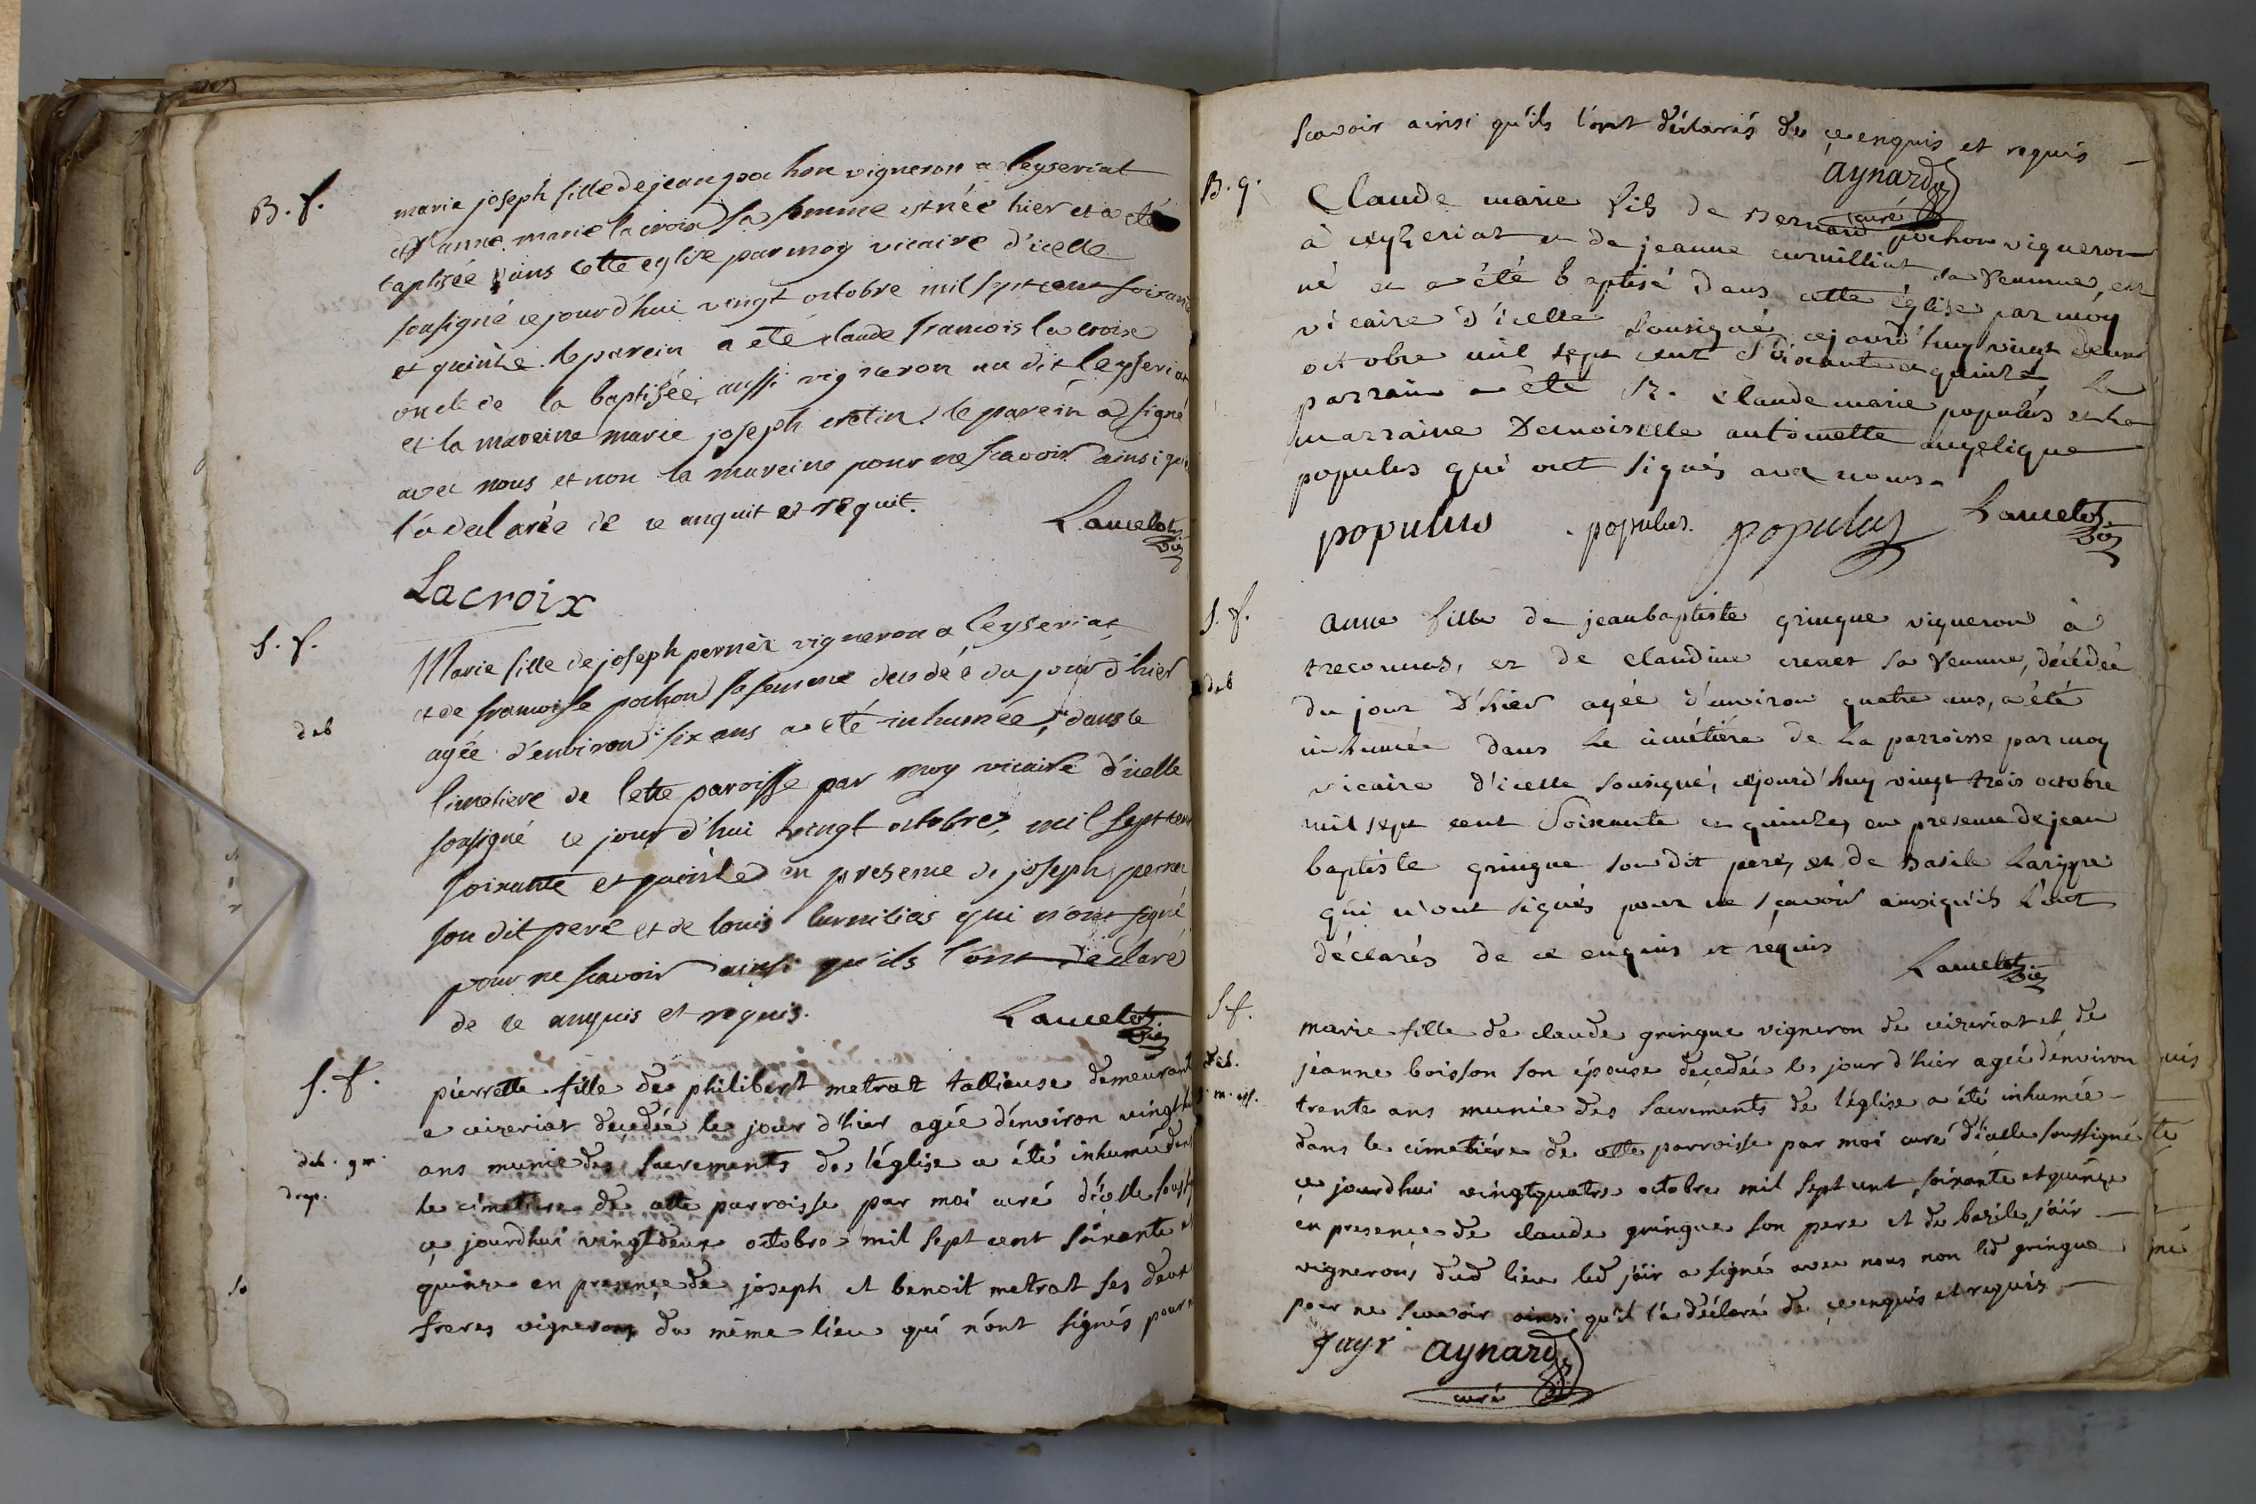 B. f.
marie joseph fille de jean pochon vigneron a Ceyseriat
et d'anne marie la croix sa femme est née hier et a eté
baptisée dans cette eglise par moy vicaire d'icelle
sousigné ce jourd'hui vingt octobre mil sept cent soixante
et quinze. le parein a eté claude francois la croix
oncle de la baptisée, aussi vigneron au dit Ceyseriat
et la mareine marie joseph le parein a signé
avec nous et non la mareine pour ne scavoir ainsi que
l'a declarée de ce anquit et requit.
Lancelot vic
Lacroix
S. f.
deb
Marie fille de joseph perrier vigneron a Ceyseriat
et de francoise pochon sa femme decedée du jour d'hier
agée d'environ six ans a eté inhumée, dans le
cimetiere de cette paroisse par moy vicaire d'icelle
sousigné ce jour d'hui vingt octobre, mil sept cent
soixante et quinze en presence de joseph perrier
son dit pere et de louis qui n'ont signé
pour ne scavoir ainsi qu'ils l'ont déclaré
de ce anquis et requis.
Lancelot vic
S. f.
deb. gr.
drap.
pierrette fille de philibert metrat tallieuse demeurant
a ceizeriat deçedée le jour d'hier agée d'environ vingt
ans munie des sacrements de l'église a été inhumé dans
le cimetiere de cette parroisse par moi curé d'icelle
ce jourdhui vingtdeux octobre mil sept cent soixante et
quinze en presençe de joseph et benoit metrat ses deux
freres vignerons du même lieu qui n'ont signés pour
scavoir ainsi qu'ils l'ont déclarés de çe enquis et requis
aynard
curé
B. g.
Claude marie fils de Bernard pochon vigneron
à ceyzeriat et de jeanne curnilliat sa femme, est
né et a été baptisé dans cette église par moy
vicaire d'icelle sousigné, cejourd'huy vingt deux
octobre mil sept cent soixante et quinze, Le
parrain a été Sr. Claude marie populus et la
marraine Demoiselle antoinette angelique
populus qui ont signés avec nous.
populus populus. populus Lancelot vic
S. f.
deb
Anne fille de jeanbaptiste gringue vigneron à
treconnas, et de Claudine crenet sa femme, décédée
du jour d'hier agée d'environ quatre ans, a été
inhumée dans le cimétiére de la parroisse par moy
vicaire d'icelle sousigné, cejourd'huy vingt trois octobre
mil sept cent soixante et quinze, en presence de jean
baptiste gringue son dit pere, et de Basile
qui n'ont signés pour ne sçavoir ainsiqu'ils l'ont
déclarés de ce enquis et réquis
Lancelot vic
S. f.
deb.
marie fille de claude gringue vigneron de ceizeriat et de
jeanne boisson son épouse deçedée le jour d'hier agée d'environ
trente ans munie des sacrements de l'église a été inhumée
dans le cimetiére de cette parroisse par moi curé d'icelle soussigné
ce jourdhui vingtquatre octobre mil sept cent soixante et quinze
en presençe de claude gringue son pere et de bazile jäir
vignerons dud lieu led jäir a signé avec nous non led gringue
pour ne scavoir ainsi qu'il l'a déclaré de çe enquis et requis
Jayr aynard
curé